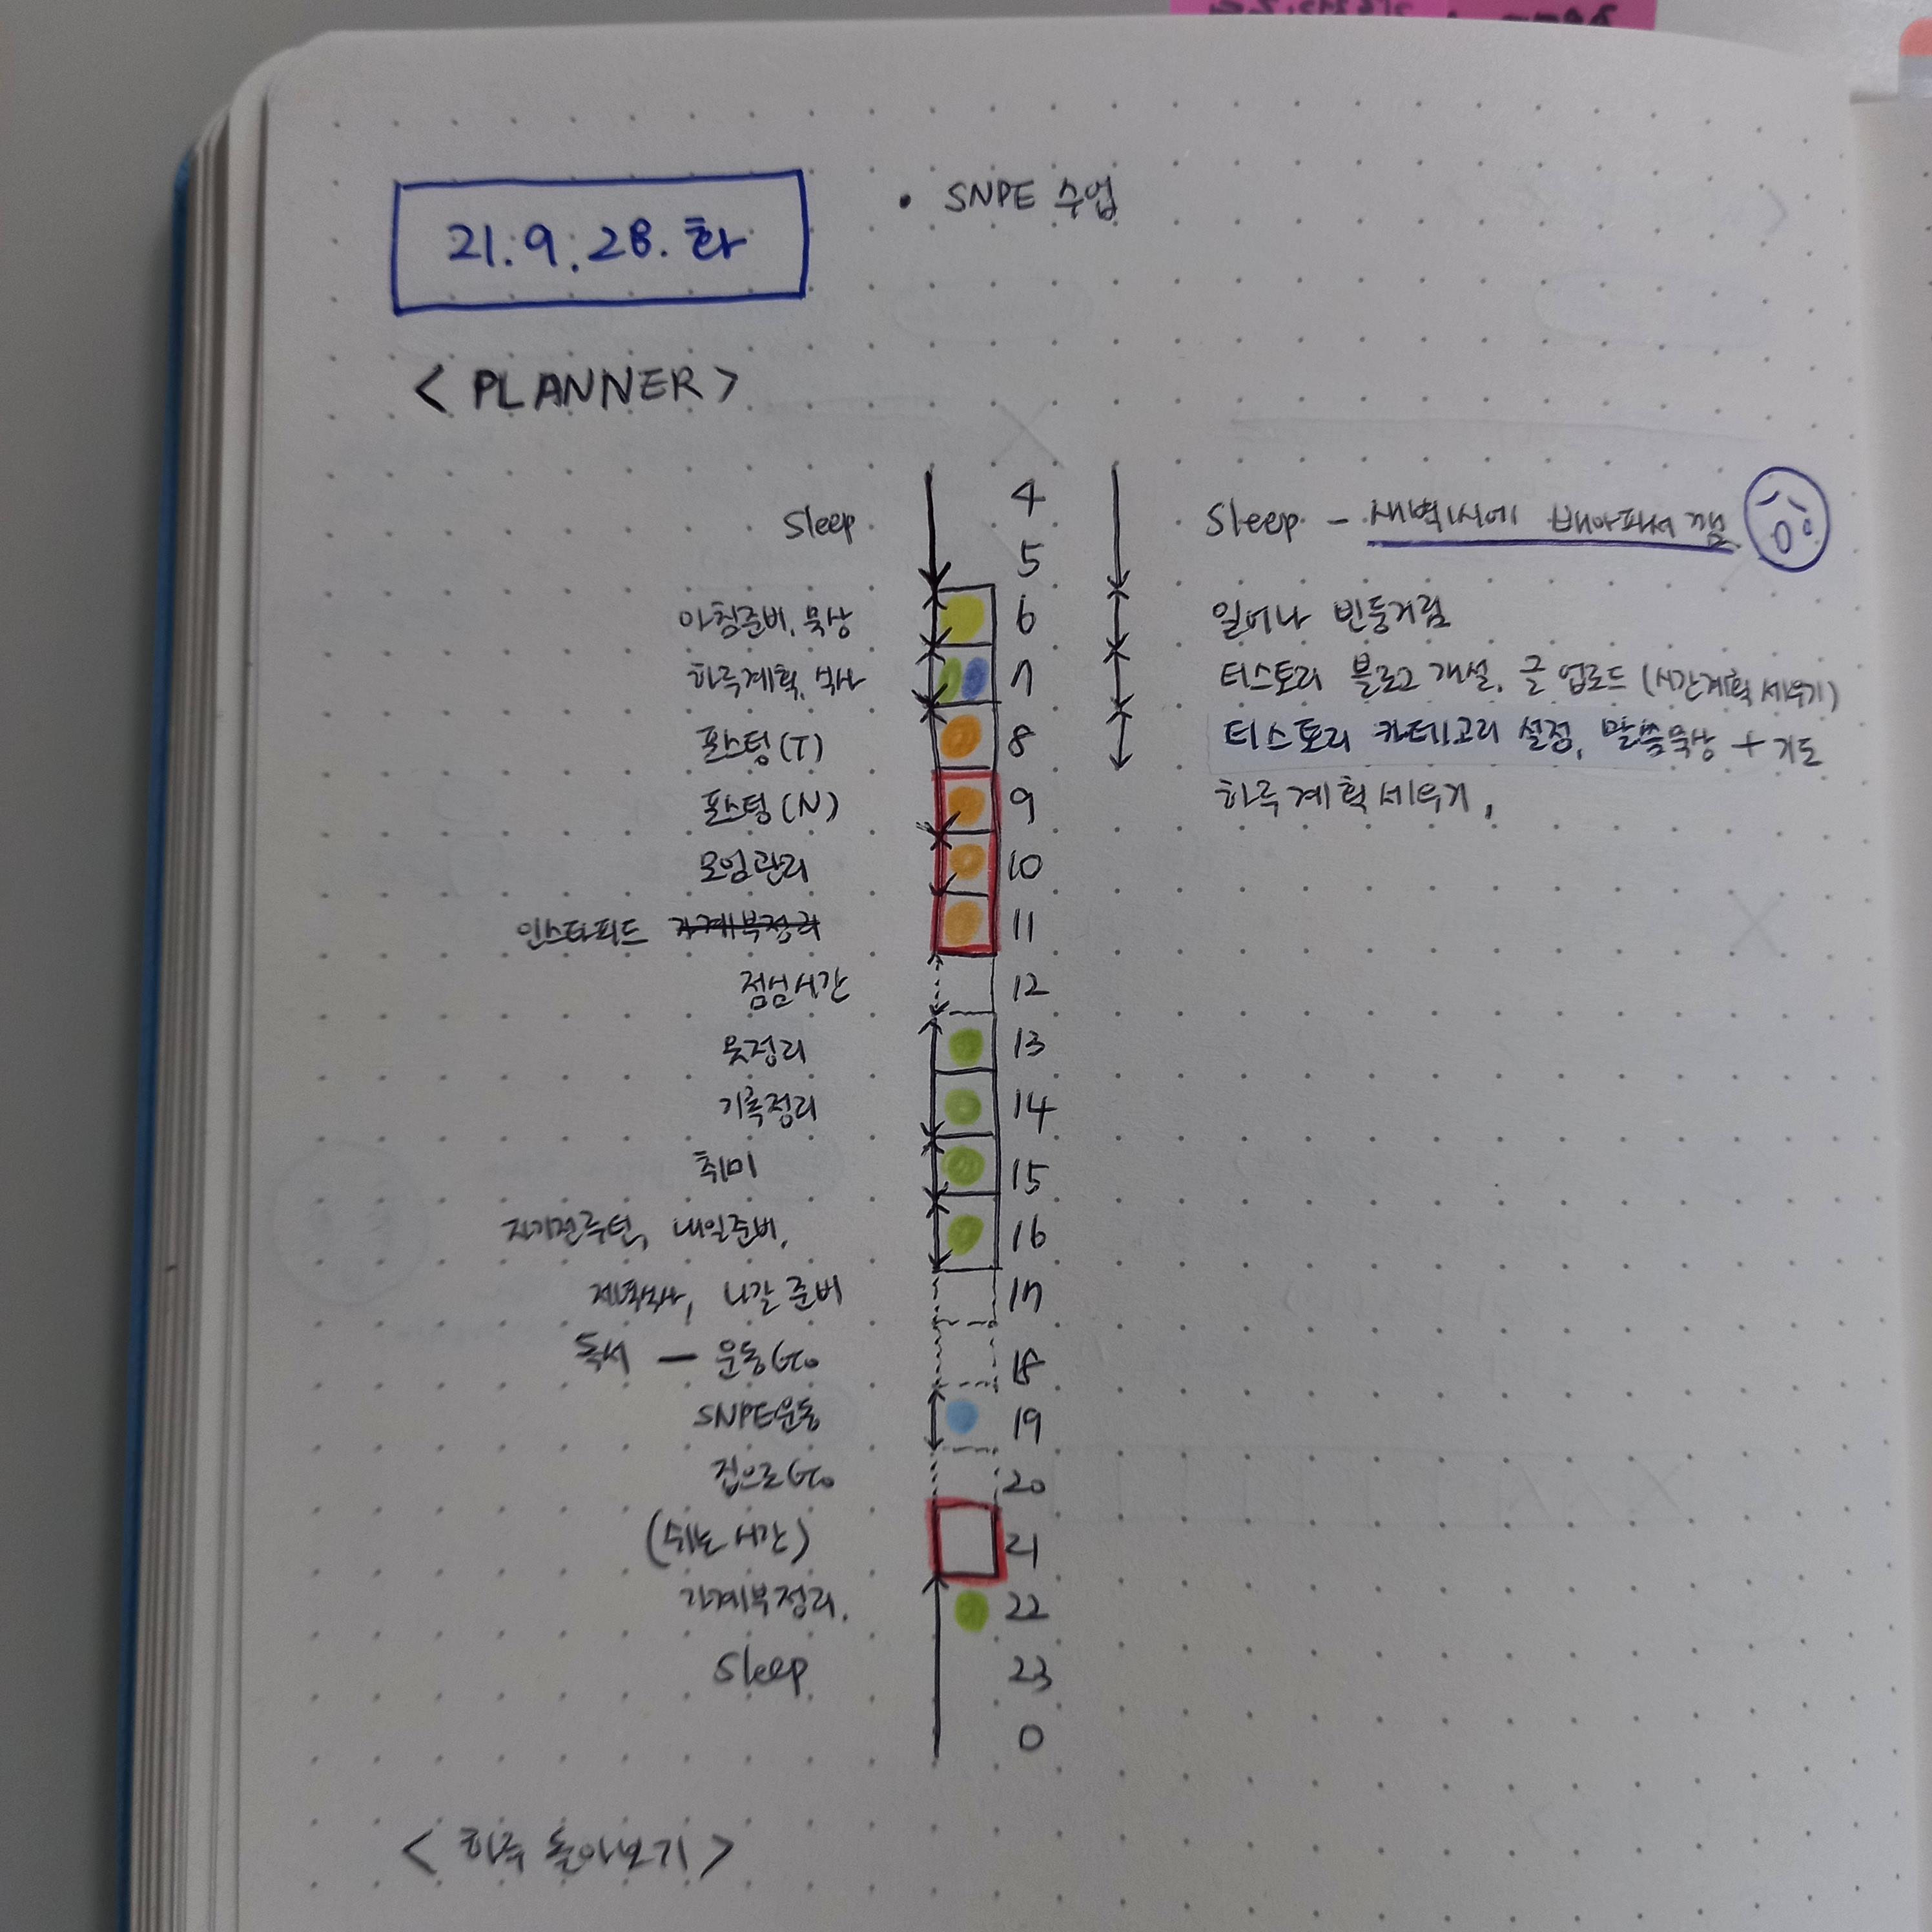 21.9.28.화
• SNPE 수업
< PLANNER >
Sleep 4 Sleep - 새벽1시에 배아파서 깸
5
아침준비, 묵상 6 일어나 빈둥거림
하루계획, 식사 7 티스토리 블로그 개설, 글 업로드 (시간계획 세우기)
포스팅(T) 8 티스토리 카테고리 설정, 말씀묵상 + 기도
포스팅(N) 9 하루계획세우기,
모임관리 10
인스타피드 가계부정리 11
점심시간 12
옷정리 13
기록정리 14
취미 15
자기전루틴, 내일준비, 16
저녁식사, 나갈 준비 17
독서 — 운동Go 18
SNPE운동 19
집으로Go 20
(쉬는 시간) 21
가계부정리. 22
Sleep 23
0
< 하루 돌아보기 >